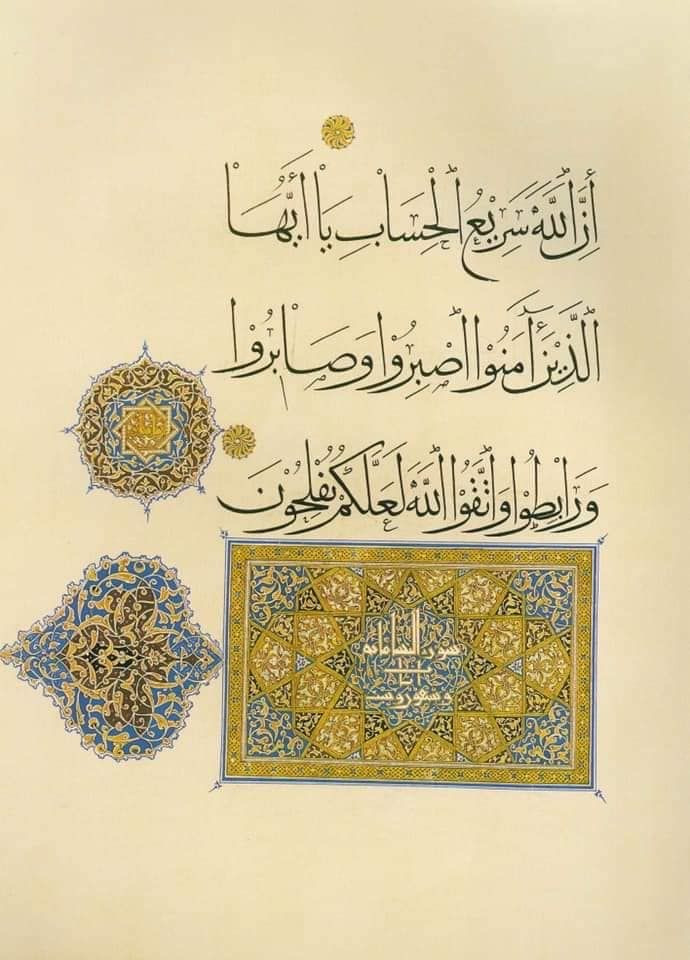 إِنَّ اللَّهَ سَرِيعُ الْحِسَابِ يَا أَيُّهَا
الَّذِينَ آمَنُوا اصْبِرُوا وَصَابِرُوا
وَرَابِطُوا وَاتَّقُوا اللَّهَ لَعَلَّكُمْ تُفْلِحُونَ
سورة النسا مائة
وسبعون وست